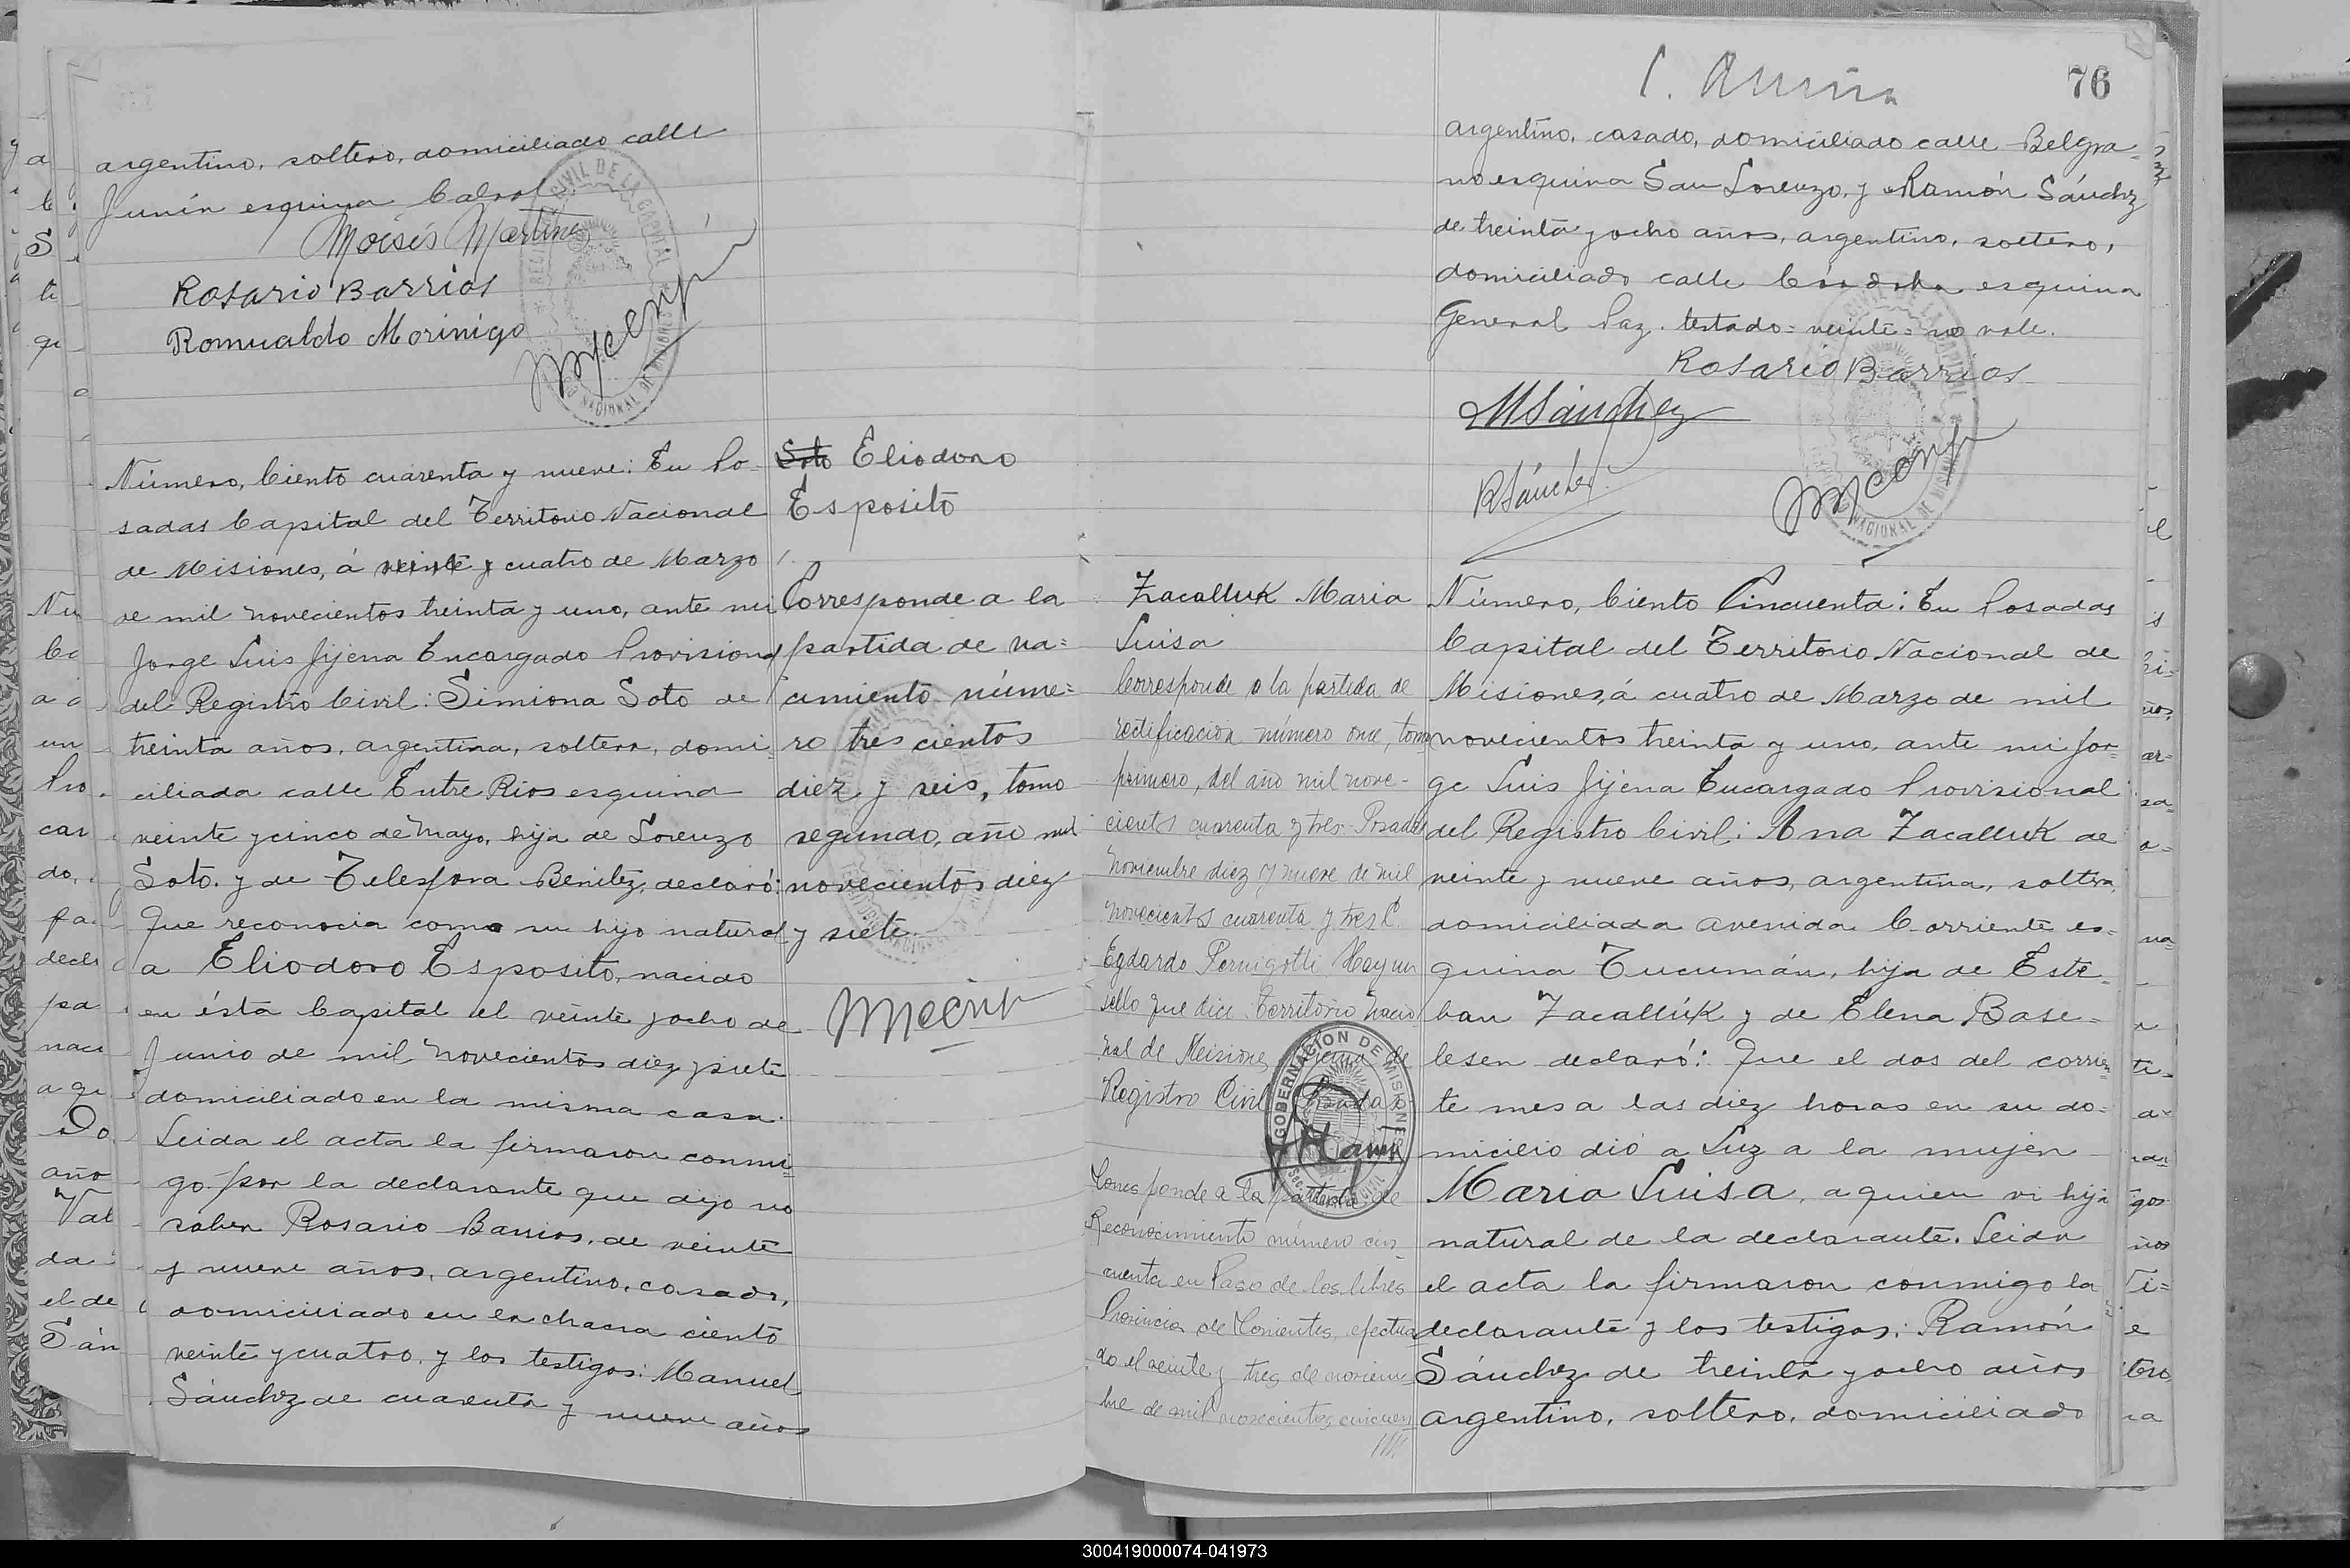 argentino, soltero, domiciliado calle
Junín esquina Cabral
Moisés Martínez
Rosario Barrios
Romualdo Morinigo
Número, Ciento cuarenta y nueve: En Po-
sadas Capital del Territorio Nacional
de Misiones, á veinte y cuatro de Marzo
de mil novecientos treinta y uno, ante mi
Jorge Luis Jijena Encargado Provisional
del Registro Civil: Simiona Soto de
treinta años, argentina, soltera, domi-
ciliada calle Entre Rios esquina
veinte y cinco de Mayo, hija de Lorenzo
Soto. y de Telesfora Benitez, declaró:
Que reconocia como su hijo natural
a Eliodoro Esposito, nacido
en ésta Capital el veinte y ocho de
Junio de mil novecientos diez y siete
domiciliado en la misma casa.
Leida el acta la firmaron conmi-
go por la declarante que dijo no
saber Rosario Barrios, de veinte
y nueve años, argentino, casado,
domiciliado en la chacra ciento
veinte y cuatro, y los testigos: Manuel
Sánchez de cuarenta y nueve años
Soto Eliodoro
Esposito
Corresponde a la
partida de na=
cimiento núme=
ro tres cientos
diez y seis, tomo
segundo, año mil
novecientos diez
y siete.
76
argentino, casado, domiciliado calle Belgra-
no esquina San Lorenzo, y Ramón Sánchez
de treinta y ocho años, argentino, soltero,
domiciliado calle Córdoba esquina
General Paz. testado= veinte= no vale.
Rosario Barrios
MSánchez
RSánchez
Zacalluk Maria
Luisa
Corresponde a la partida de
rectificación número once, tomo
primero, del año mil nove-
cientos cuarenta y tres. Posadas
Noviembre diez y nueve de mil
novecientos cuarenta y tres
Egdardo Pernigotti Hay un
sello que dice: Territorio Nacio
nal de Misiones, de
Registro Civil Posadas
GOBERNACION DE MISIONES
Corresponde a la partida de
Reconocimiento número cin-
cuenta en Paso de los libres
Provincia de Corrientes, efectua
do el veinte y tres de noviem-
bre de mil novecientos cincuen
Número, Ciento Cincuenta: En Posadas
Capital del Territorio Nacional de
Misiones, á cuatro de Marzo de mil
novecientos treinta y uno, ante mi Jor-
ge Luis Jijena Encargado Provisional
del Registro Civil: Ana Zacalluk de
veinte y nueve años, argentina, soltera,
domiciliada avenida Corriente es=
quina Tucumán, hija de Este-
ban Zacallúk y de Elena Base=
lesen declaró: Que el dos del corrien-
te mes a las diez horas en su do=
micilio dió a Luz a la mujer
Maria Luisa, a quien vi hija
natural de la declarante. Leida
el acta la firmaron conmigo la
declarante y los testigos: Ramón
Sánchez de treinta y ocho años
argentino, soltero, domiciliado
300419000074-041973